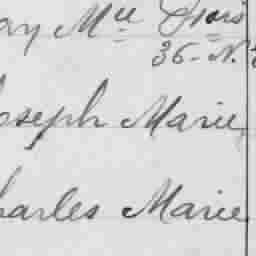 ay Mee
36 - N.
oseph Marie
harles Marie